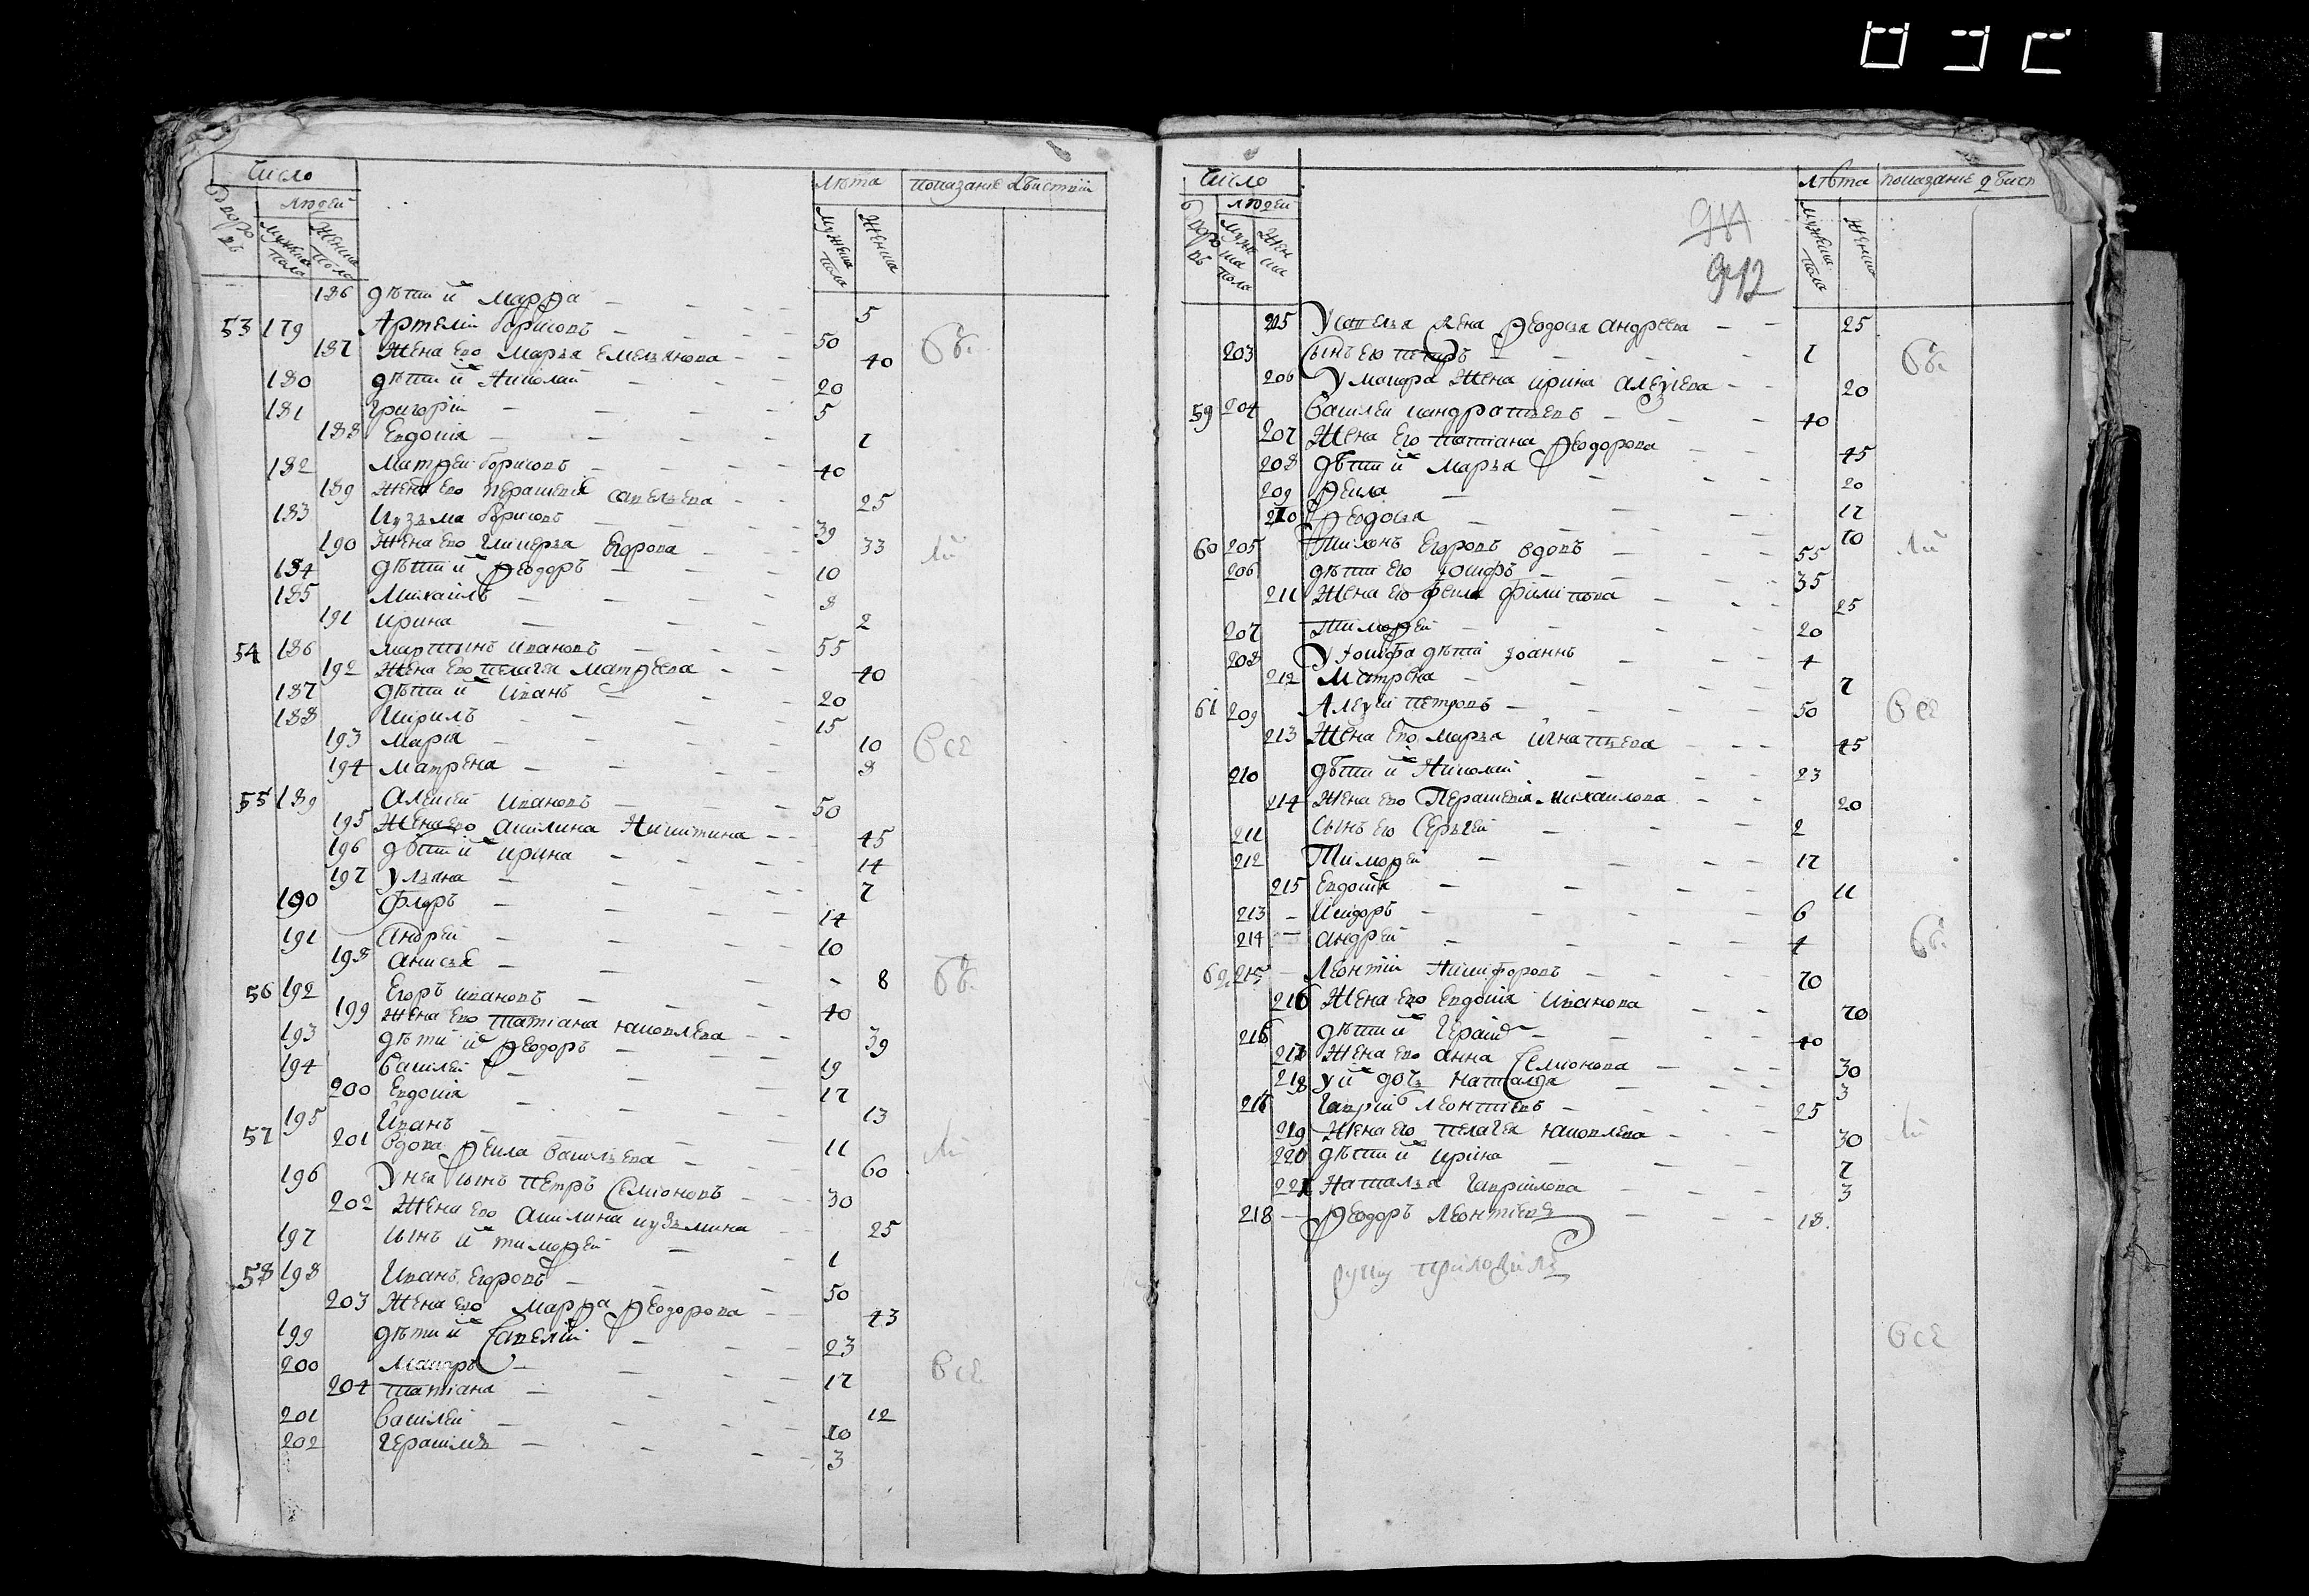 Число
Людей
Дворовъ
мужеска пола
женска пола
Лѣта
показаніе дѣйствій
мужеска пола
женска
186 дѣти ихъ Марѳа 5
53 179 Артемій Борисовъ 50
187 Жена его Марья Емельянова 40
180 дѣти ихъ Николай 20
181 Григорій 5
188 Евдокія 7
182 Матѳей Борисовъ 40
189 Жена его Перасковія Савельева 25
183 Кузьма Борисовъ 39
190 Жена его Гликерья Егорова 33
184 дѣти ихъ Ѳеодоръ 10
185 Михаилъ 8
191 Ирина 2
54 186 Мартынъ Ивановъ 55
192 Жена его Пелагея Матѳеева 40
187 дѣти ихъ Иванъ 20
188 Кирилъ 15
193 Марія 10
194 Матрена 8
55 189 Алексей Ивановъ 50
195 Жена его Акилина Никитина 45
196 дѣти ихъ Ирина 14
197 Ульяна 7
190 Флоръ 14
191 Андрей 10
198 Анисья 8
56 192 Егоръ Ивановъ 40
199 Жена его Татіана Яковлева 39
193 дѣти ихъ Ѳеодоръ 19
194 Василей 17
200 Евдокія 13
195 Иванъ 11
57 201 Вдова Ѳекла Васильева 60
196 У нея сынъ Петръ Семіоновъ 30
202 Жена его Акилина Кузьмина 25
197 сынъ ихъ Тимоѳей 1
58 198 Иванъ Егоровъ 50
203 Жена его Марѳа Ѳеодорова 43
199 дѣти ихъ Савелій 23
200 Макаръ 17
204 Татіана 12
201 Василей 10
202 Герасимъ 3
бы
ли
все
бы
ли
все
Число
Людей
Дворовъ
мужеска пола
женска
942
Лѣта
показаніе дѣйст
мужеска пола
женска
205 У Савелья жена Ѳеодосья Андреева 25
203 Сынъ ею Петръ 1
206 У Макара жена Ирина Алексіева 20
59 204 Василей Кандратьевъ 40
207 Жена его Татіана Ѳеодорова 45
208 дѣти ихъ Марья 20
209 Ѳекла 17
210 Ѳеодосья 10
60 205 Тихонъ Егоровъ вдовъ 55
206 дѣти его Іосифъ 35
211 Жена его Фекла Филипова 25
207 Тимоѳей 20
208 У Іосифа дѣти Іоаннъ 4
212 Матрена 7
61 209 Алексій Петровъ 50
213 Жена его Марья Игнатьева 45
210 дѣти ихъ Николай 23
214 Жена его Перасковія Михаилова 20
211 Сынъ его Сергей 2
212 Тимоѳей 17
215 Евдокія 11
213 Исидоръ 6
214 Андрей 4
62 215 Леонтій Никифоровъ 70
216 Жена его Евдокія Иванова 70
216 дѣти ихъ 40
217 Жена его Анна Семіонова 30
218 У ихъ дочь Наталья 3
217 Гаврій Леонтіевъ 25
219 Жена его Пелагея Яковлева 30
220 дѣти ихъ Ирина 7
221 Наталья Гаврилова 3
218 Ѳеодоръ Леонтіевъ 18
руку приложилъ
бы
ли
все
бы
ли
все